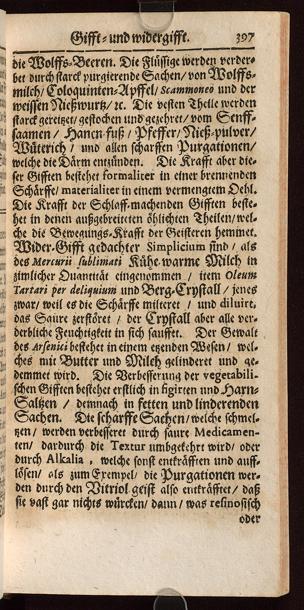 Gifft- und widergifft. 397
die Wolffs-Beeren. Die Flüssige werden verder-
bet durch starck purgierende Sachen/ von Wolffs-
milch/ Coloquinten-Apffel/ Scammoneo und der
weissen Nießwurtz/ ꝛc. Die vesten Theile werden
starck geretzet/ gestochen und gezehret/ vom Senff-
saamen/ Hanen-fuß/ Pfeffer/ Nieß-pulver/
Wüterich/ und allen scharffen Purgationen/
welche die Därm entzünden. Die Krafft aber die-
ser Gifften bestehet formaliter in einer brennenden
Schärffe/ materialiter in einem vermengtem Oehl.
Die Krafft der Schlaff-machenden Gifften beste-
het in denen außgebreiteten öhlichten Theilen/ wel-
che die Bewegungs-Krafft der Geisteren hemmet.
Wider-Gifft gedachter Simplicium sind/ als
des Mercurii sublimati Kühe-warme Milch in
zimlicher Quantität eingenommen/ item Oleum
Tartari per deliquium und Berg-Crystall/ jenes
zwar/ weil es die Schärffe milteret/ und diluirt,
das Saure zerstöret/ der Crystall aber alle ver-
derbliche Feuchtigkeit in sich saufft. Der Gewalt
des Arsenici bestehet in einem etzenden Wesen/ wel-
ches mit Butter und Milch gelinderet und ge-
demmet wird. Die Verbesserung der vegetabili-
schen Gifften bestehet erstlich in figirten und Harn-
Saltzen/ demnach in fetten und linderenden
Sachen. Die scharffe Sachen/ welche schmel-
tzen/ werden verbesseret durch saure Medicamen-
ten/ dardurch die Textur umbgekehrt wird/ oder
durch Alkalia, welche sonst entkräfften und auff-
lösen/ als zum Exempel/ die Purgationen wer-
den durch den Vitriol geist also entkräfftet/ daß
sie vast gar nichts würcken/ dann/ was resinosisch
oder